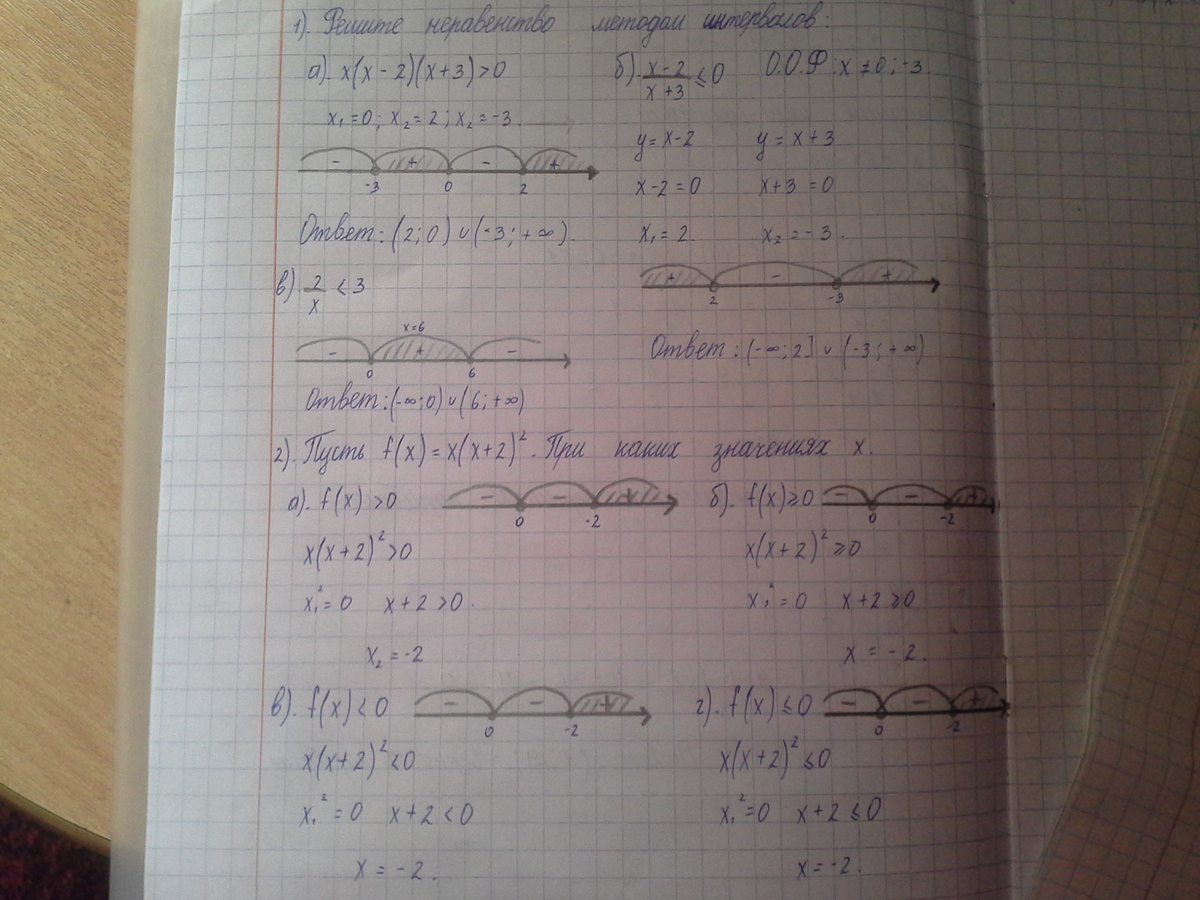 1). Решите неравенство методом интервалов:
а). x(x-2)(x+3)>0
x₁=0; x₂=2; x₂=-3.
- + - +
-3 0 2
Ответ: (2;0)∪(-3;+∞).
б). x-2/x+3 ≤0 О.О.Ф: x≠0;-3.
y=x-2 y=x+3
x-2=0 x+3=0
x₁=2. x₂=-3.
+ - +
2 -3
Ответ: (-∞;2]∪(-3;+∞)
в). 2/x <3
x=6
- + -
0 6
Ответ: (-∞;0)∪(6;+∞)
2). Пусть f(x)=x(x+2)². При каких значениях x.
а). f(x)>0
- - +
0 -2
x(x+2)²>0
x₁²=0 x+2>0.
x₂=-2
б). f(x)≥0
- - +
0 -2
x(x+2)²≥0
x₁²=0 x+2≥0
x=-2.
в). f(x)<0
- - +
0 -2
x(x+2)²<0
x₁²=0 x+2<0
x=-2.
г). f(x)≤0
- - +
0 -2
x(x+2)²≤0
x₁²=0 x+2≤0
x=-2.